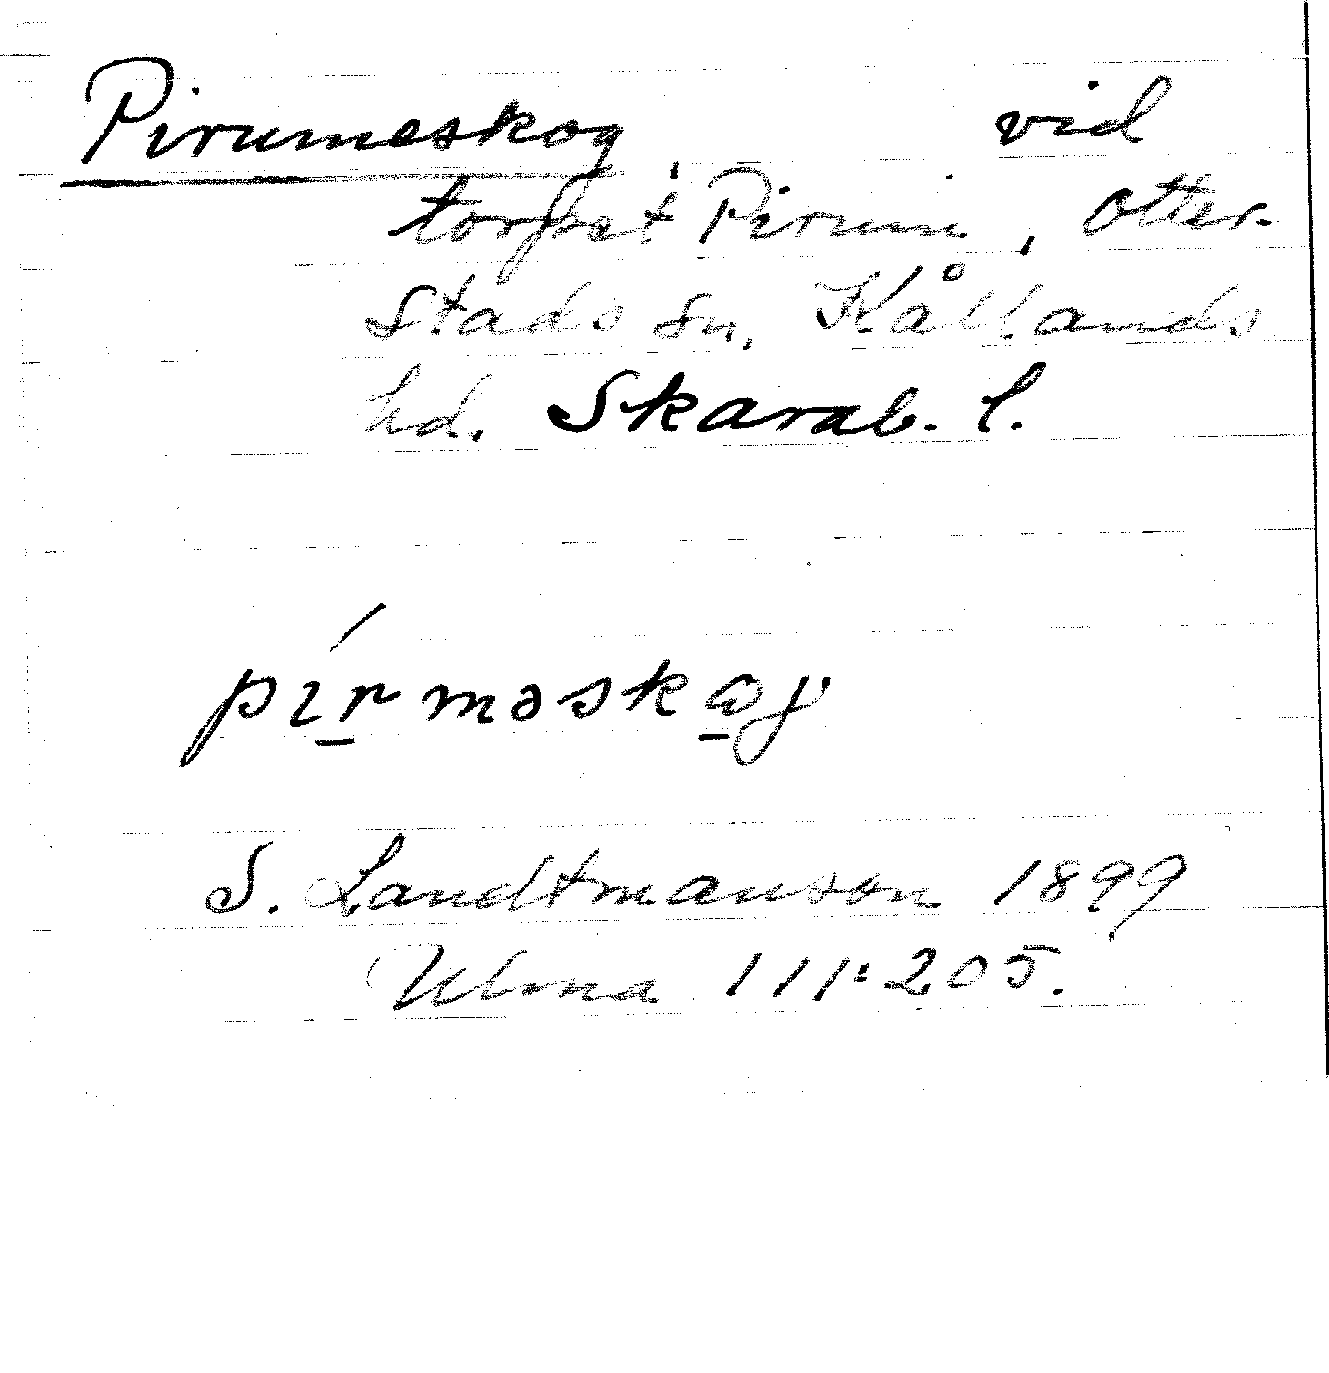 Pirumeskog, vid
torpet Pirum, Otter-
stads sn, Kållands
hd. Skarab. l.
pírməskɷγ
S. Landtmanson 1899
Ulma 111:205.